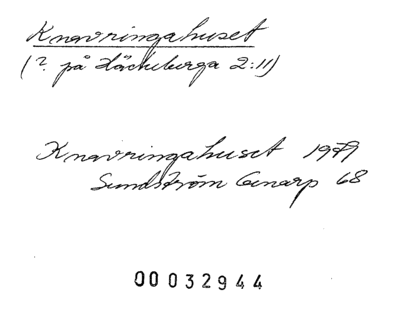 Knavringahuset
(?. på Häckeberga 2:11)
Knavringahuset 1979
Sundström Genarp 68
00032944